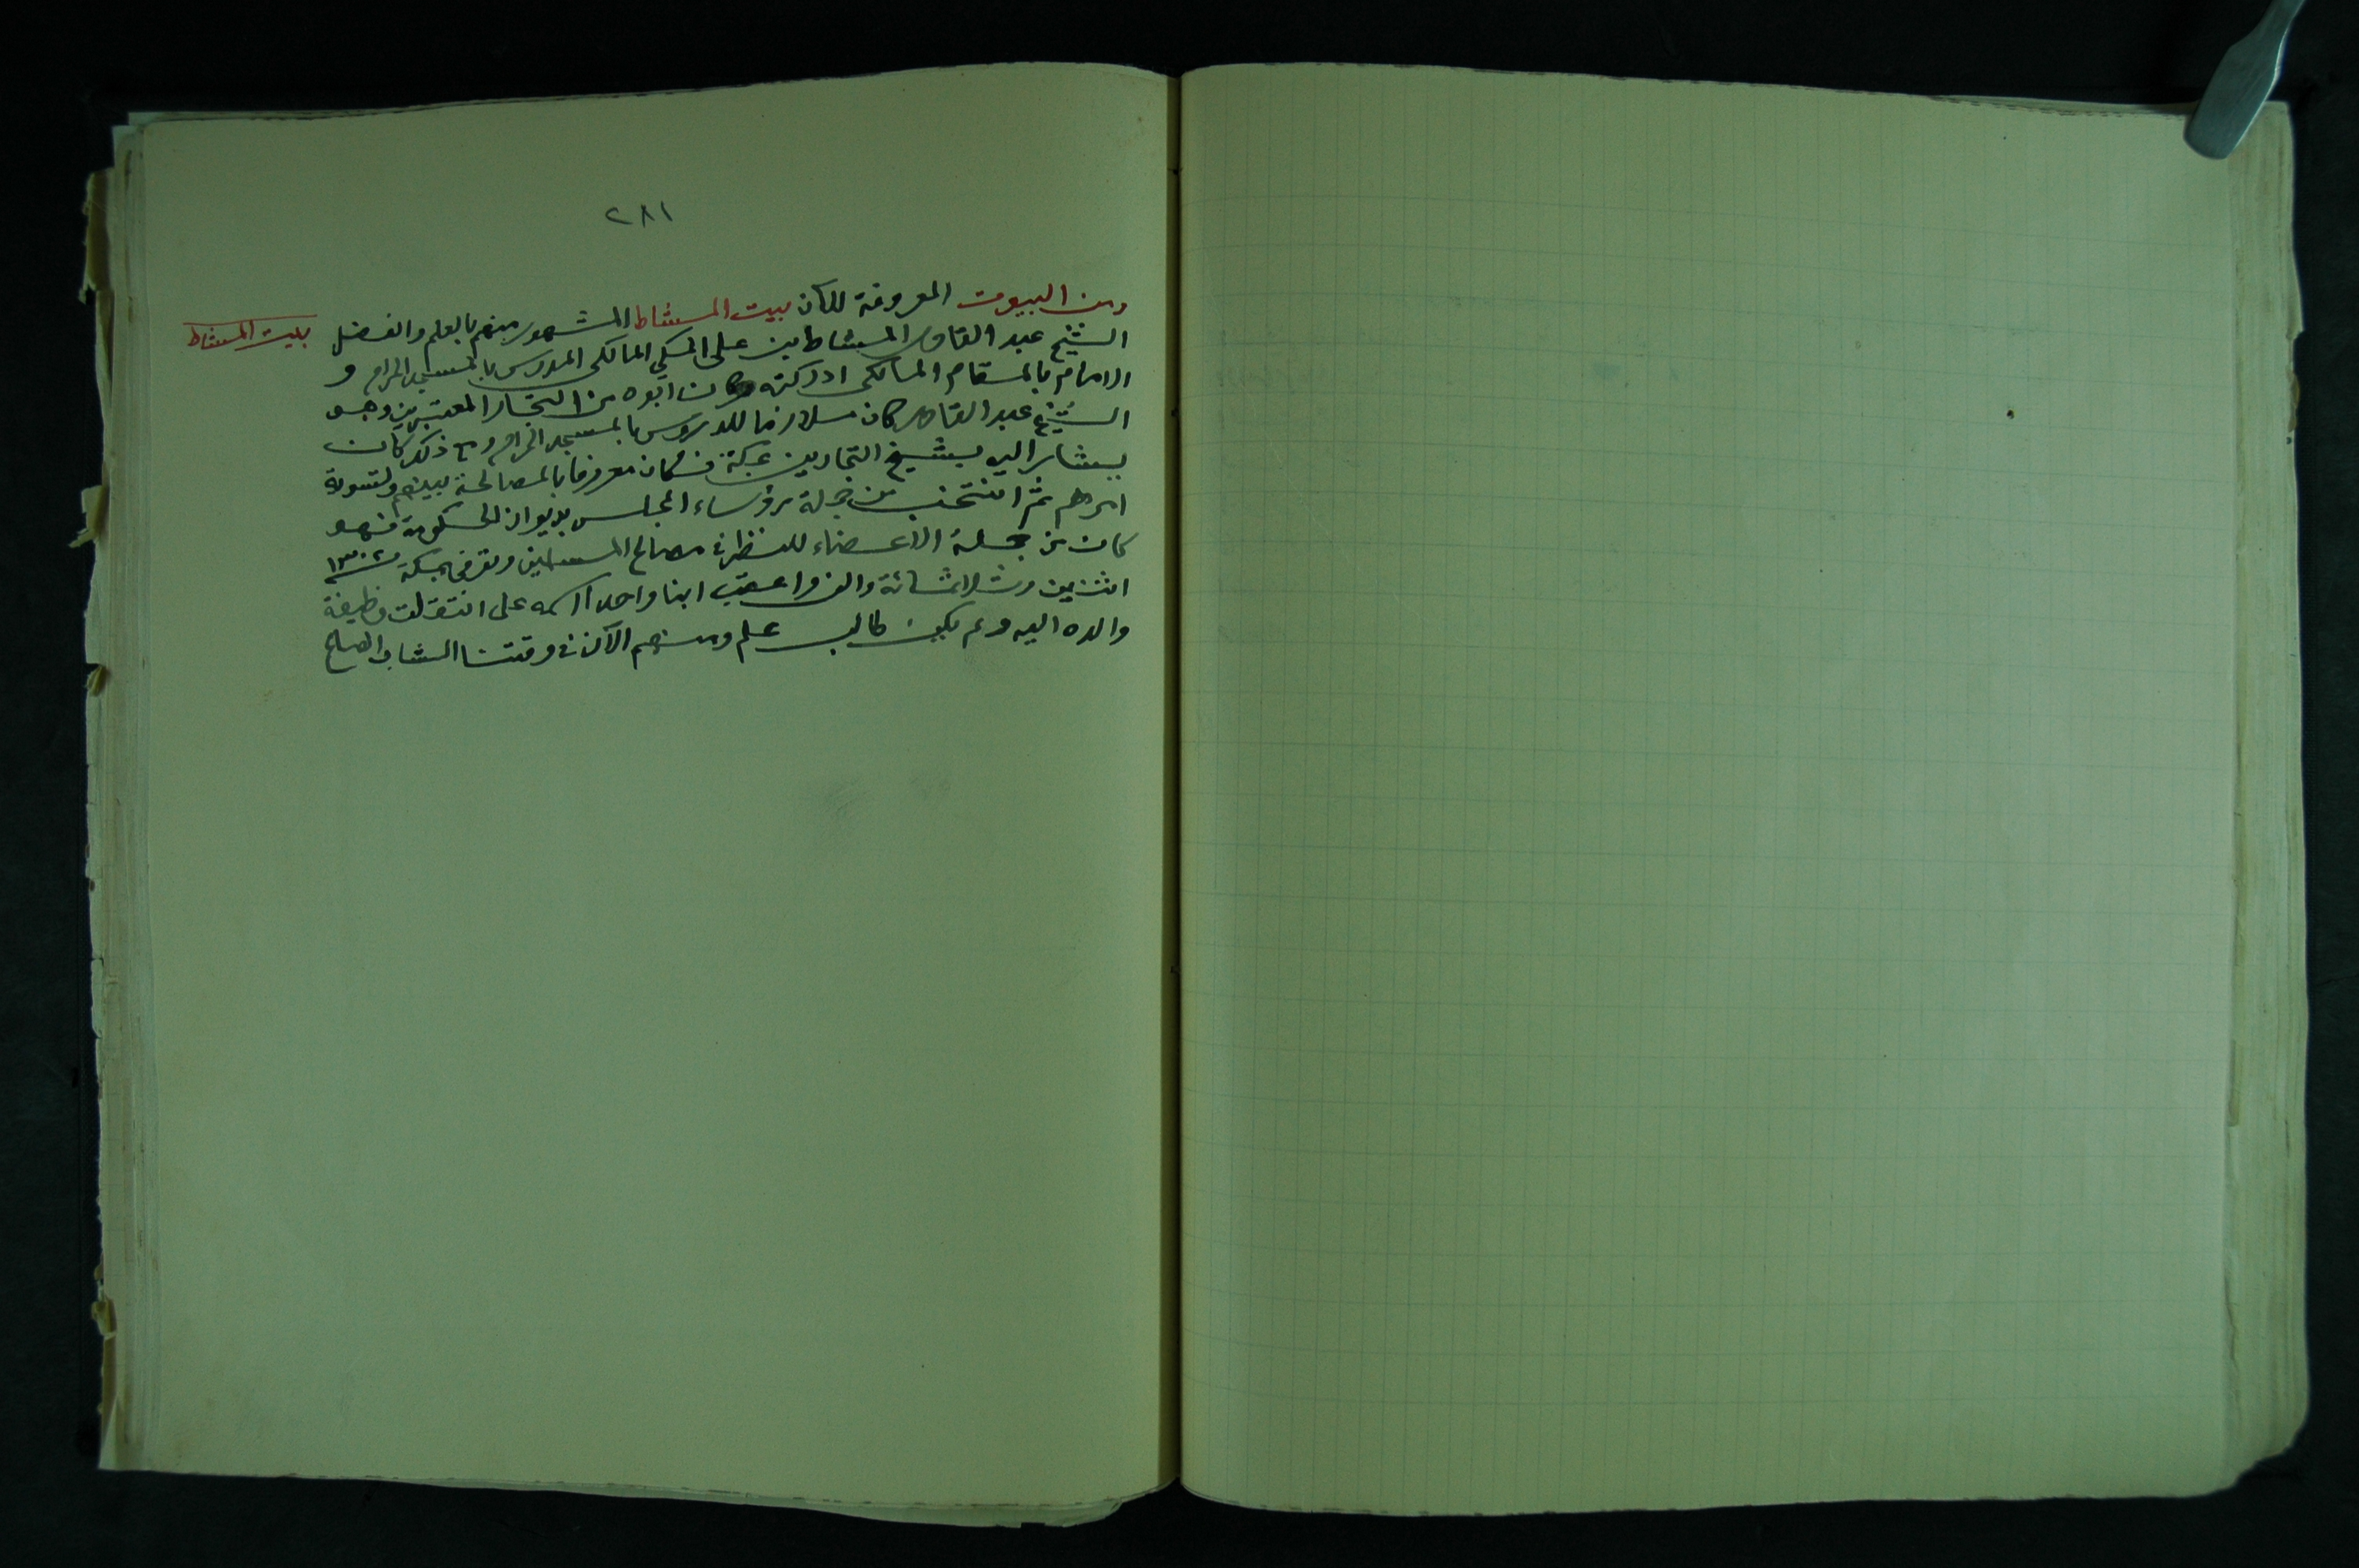 ٢٨١
ومن البيوت المعروفة للآن بيت المشاط المشهور منهم بالعلم والفضل
بيت المشاط
الشيخ عبد القادر المشاط بن علي المكي المالكي المدرس بالمسجد الحرام و
الامام بالمقام المالكي ادركته وكان ابوه من التجار المعتبرين وهو
الشيخ عبد القادر كان ملازما للدروس بالمسجد الحرام ومع ذلك كان
يشار اليه بشيخ التجارين بمكة فكان معروفا بالمصالحة بينهم ولتسوية
امرهم ثم انتخب من جملة رؤساء المجلس بديوان الحكومة فهو
كان من جملة الاعضاء للنظر في مصالح المسلمين وتوفى بمكة ١٣٠٢
اثنين وثلاثمائة والف واعقب ابنا واحدا اسمه على انتقلت وظيفة
والده اليه ولم يكن طالب علم ومنهم الآن في وقتنا الشاب الصالح